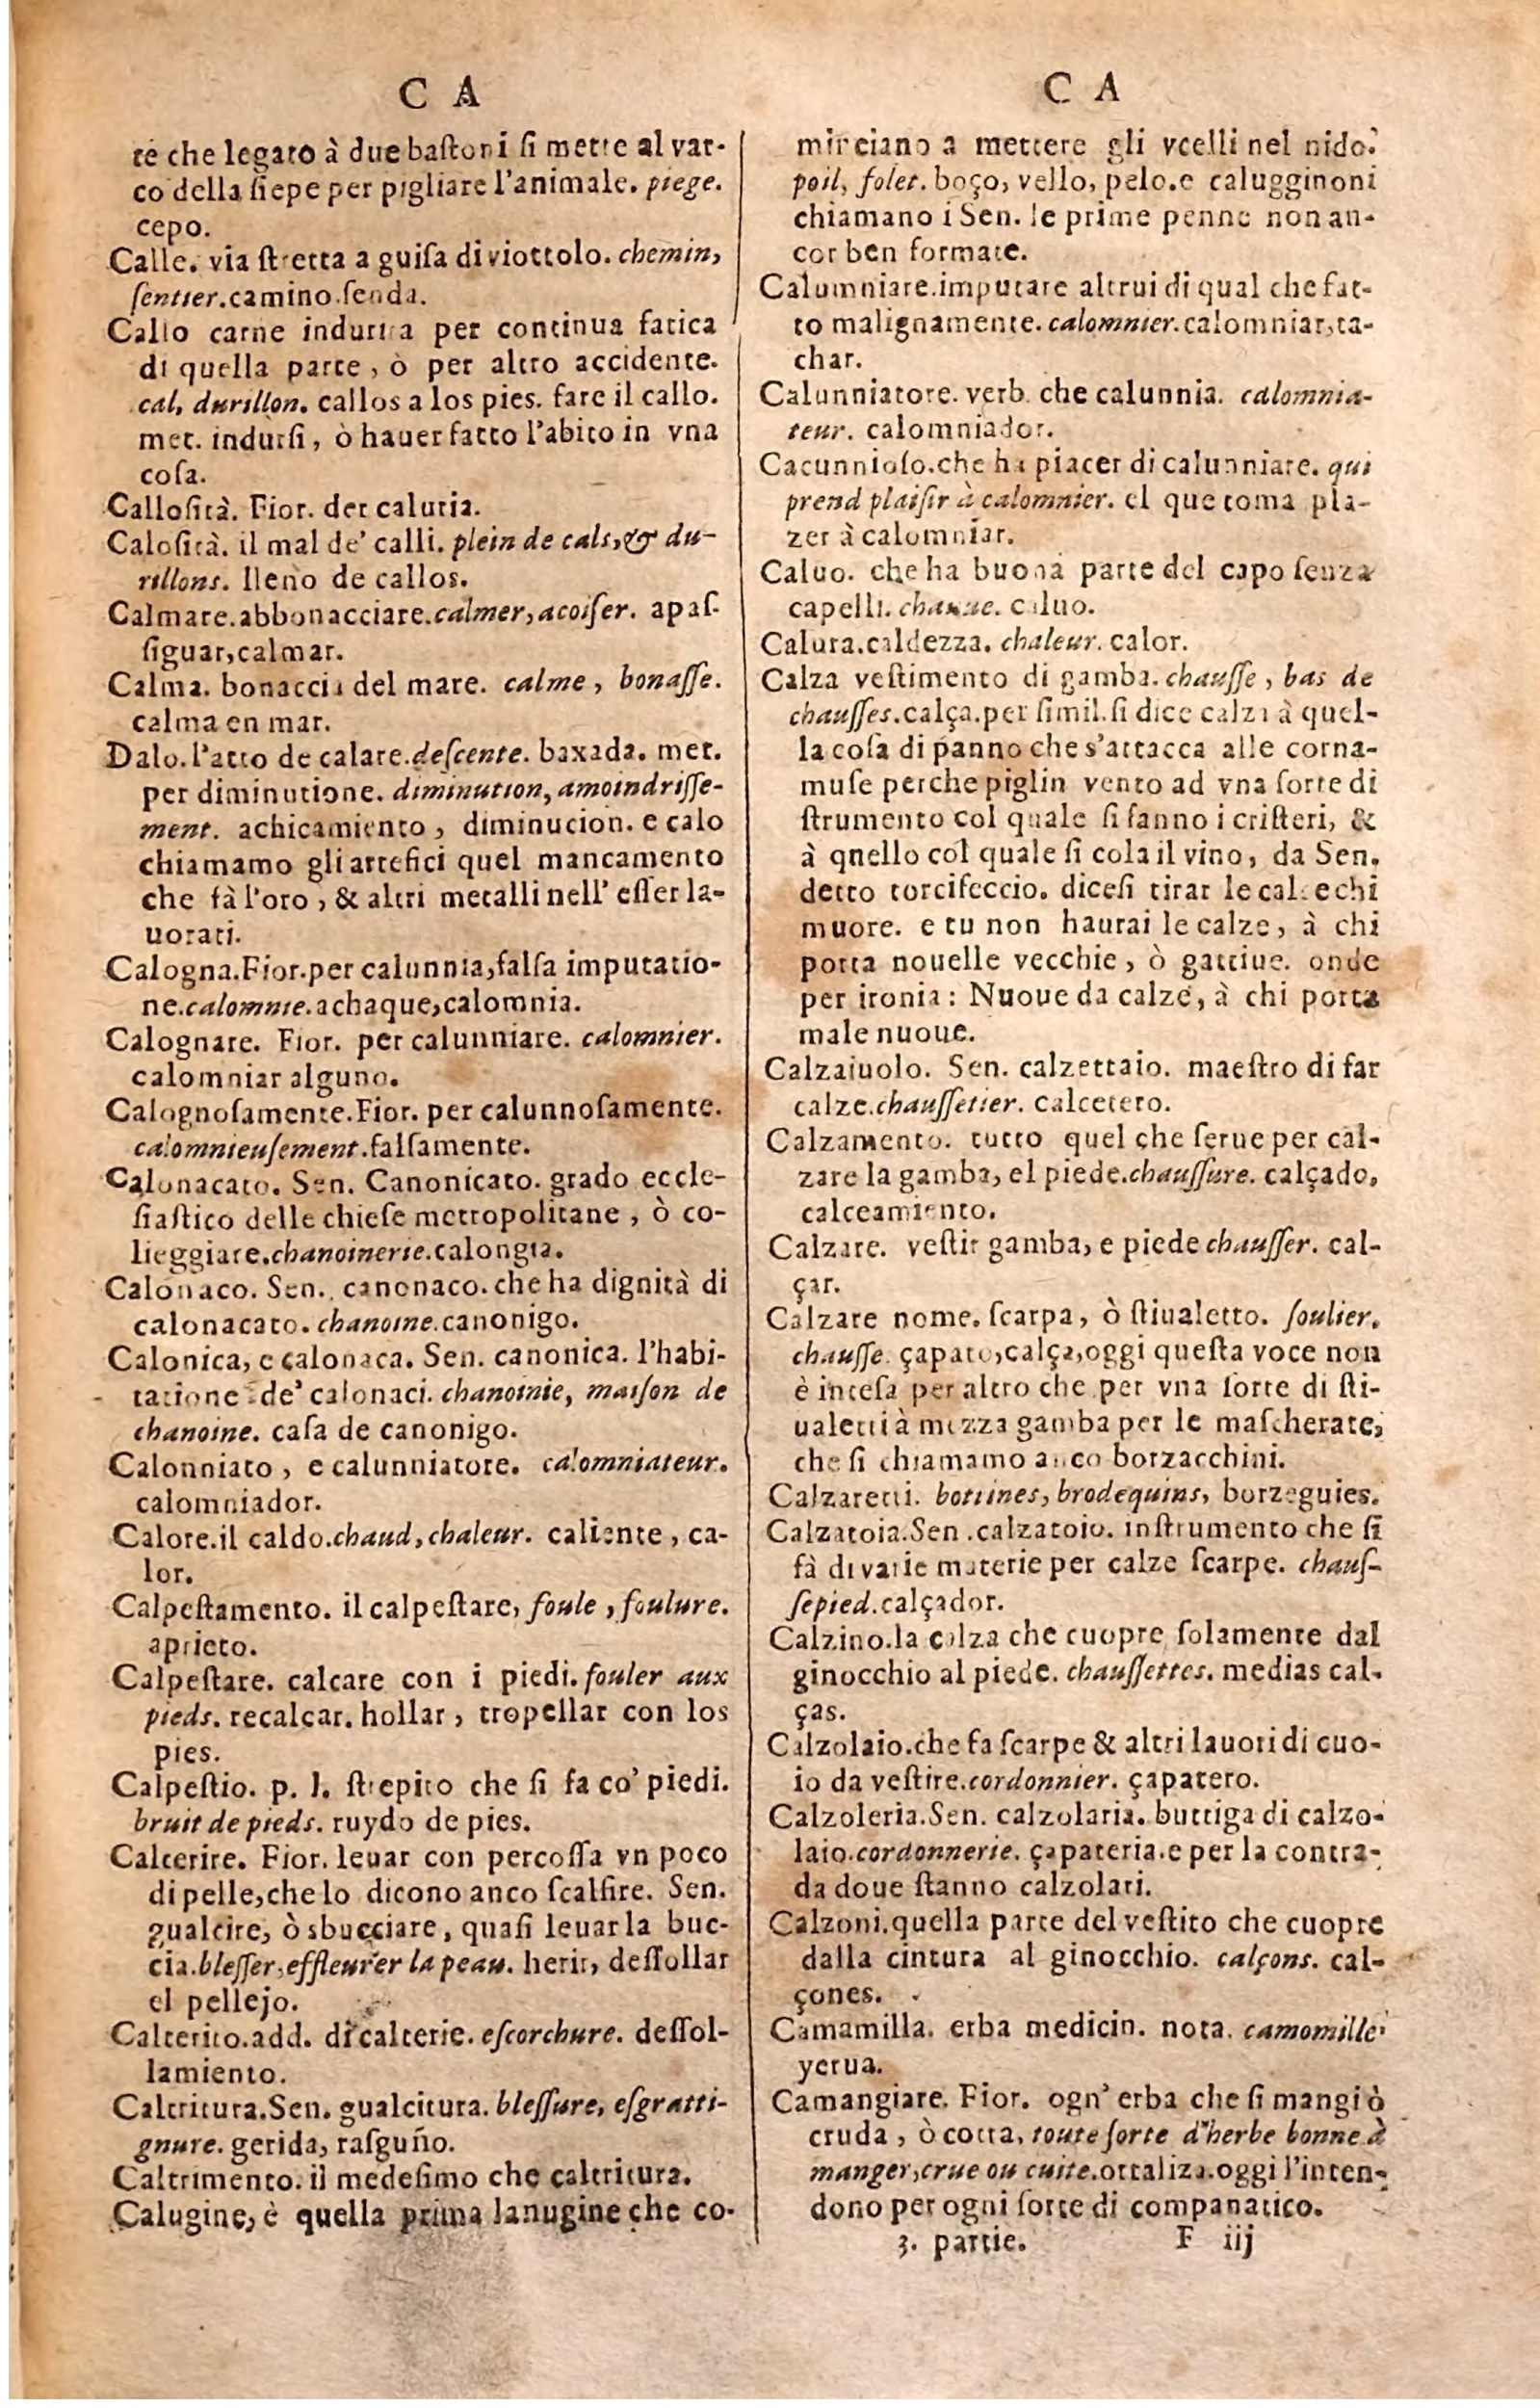 C A
te che legato à due baſtoni ſi mette al var-
co della ſiepe per pigliare l'animale. piege.
cepo.
Calle. via ſtretta a guiſa di viottolo. chemin,
ſentier. camino. ſenda.
Callo carne indurita per continua fatica
di quella parte, ò per altro accidente.
cal, durillon. callos a los pies. fare il callo.
met. indurſi, ò hauer fatto l'abito in vna
coſa.
Calloſità. Fior. det caluria.
Caloſità. il mal de' calli. plein de cals, & du-
rillons. lleno de callos.
Calmare. abbonacciare. calmer, acoiſer. apaſ-
ſiguar, calmar.
Calma. bonaccia del mare. calme, bonaſſe.
calma en mar.
Dalo. l'atto de calare. deſcente. baxada. met.
per diminutione. diminution, amoindriſſe-
ment. achicamiento, diminucion. e calo
chiamamo gli artefici quel mancamento
che fà l'oro, & altri metalli nell' eſſer la-
uorati.
Calogna. Fior. per calunnia, falſa imputatio-
ne. calomnie. achaque, calomnia.
Calognare. Fior. per calunniare. calomnier.
calomniar alguno.
Calognoſamente. Fior. per calunnoſamente.
calomnieuſement. falſamente.
Calonacato. Sen. Canonicato. grado eccle-
ſiaſtico delle chieſe metropolitane, ò co-
lieggiare. chanoinerie. calongia.
Calonaco. Sen. canonaco. che ha dignità di
calonacato. chanoine. canonigo.
Calonica, e calonaca. Sen. canonica. l'habi-
tatione de' calonaci. chanoinie, maiſon de
chanoine. caſa de canonigo.
Calonniato, e calunniatore. calomniateur.
calomniador.
Calore. il caldo. chaud, chaleur. caliente, ca-
lor.
Calpeſtamento. il calpeſtare, foule, foulure.
aprieto.
Calpeſtare. calcare con i piedi. fouler aux
pieds. recalcar. hollar, tropellar con los
pies.
Calpeſtio. p. l. ſtrepito che ſi fa co' piedi.
bruit de pieds. ruydo de pies.
Calterire. Fior. leuar con percoſſa vn poco
di pelle, che lo dicono anco ſcalfire. Sen.
gualcire, ò sbucciare, quaſi leuar la buc-
cia. bleſſer, effleurer la peau. herir, deſſollar
el pellejo.
Calterito. add. di calterie. eſcorchure. deſſol-
lamiento.
Caltritura. Sen. gualcitura. bleſſure, eſgratti-
gnure. gerida, raſguño.
Caltrimento. il medeſimo che caltritura.
Calugine, è quella prima lanugine che co-
C A
mirciano a mettere gli vcelli nel nido.
poil, folet. boço, vello, pelo. e calugginoni
chiamano i Sen. le prime penne non an-
cor ben formate.
Calumniare. imputare altrui di qual che fat-
to malignamente. calomnier. calomniar, ta-
char.
Calunniatore. verb. che calunnia. calomnia-
teur. calomniador.
Cacunnioſo. che ha piacer di calunniare. qui
prend plaiſir à calomnier. el que toma pla-
zer à calomniar.
Caluo. che ha buona parte del capo ſenza
capelli. chauue. caluo.
Calura. caldezza. chaleur. calor.
Calza veſtimento di gamba. chauſſe, bas de
chauſſes. calça. per ſimil. ſi dice calza à quel-
la coſa di panno che s'attacca alle corna-
muſe perche piglin vento ad vna ſorte di
ſtrumento col quale ſi fanno i criſteri, &
à qnello col quale ſi cola il vino, da Sen.
detto torcifeccio. diceſi tirar le calze chi
muore. e tu non haurai le calze, à chi
porta nouelle vecchie, ò gattiue. onde
per ironia: Nuoue da calze, à chi porta
male nuoue.
Calzaiuolo. Sen. calzettaio. maeſtro di far
calze. chauſſetier. calcetero.
Calzamento. tutto quel che ſerue per cal-
zare la gamba, el piede. chauſſure. calçado,
calceamiento.
Calzare. veſtir gamba, e piede chauſſer. cal-
çar.
Calzare nome. ſcarpa, ò ſtiualetto. ſoulier.
chauſſe. çapato, calça, oggi queſta voce non
è inteſa per altro che per vna ſorte di ſti-
ualetti à mezza gamba per le maſcherate,
che ſi chiamamo anco borzacchini.
Calzaretti. bottines, brodequins, borzeguies.
Calzatoia. Sen. calzatoio. inſtrumento che ſi
fà di varie materie per calze ſcarpe. chauſ-
ſepied. calçador.
Calzino. la calza che cuopre ſolamente dal
ginocchio al piede. chauſſettes. medias cal-
ças.
Calzolaio. che fa ſcarpe & altri lauori di cuo-
io da veſtire. cordonnier. çapatero.
Calzoleria. Sen. calzolaria. buttiga di calzo-
laio. cordonnerie. çapateria. e per la contra-
da doue ſtanno calzolari.
Calzoni. quella parte del veſtito che cuopre
dalla cintura al ginocchio. calçons. cal-
çones.
Camamilla. erba medicin. nota. camomille
yerua.
Camangiare. Fior. ogn' erba che ſi mangi ò
cruda, ò cotta, toute ſorte d'herbe bonne à
manger, crue ou cuite. ortaliza. oggi l'inten-
dono per ogni ſorte di companatico.
3. partie. F iij